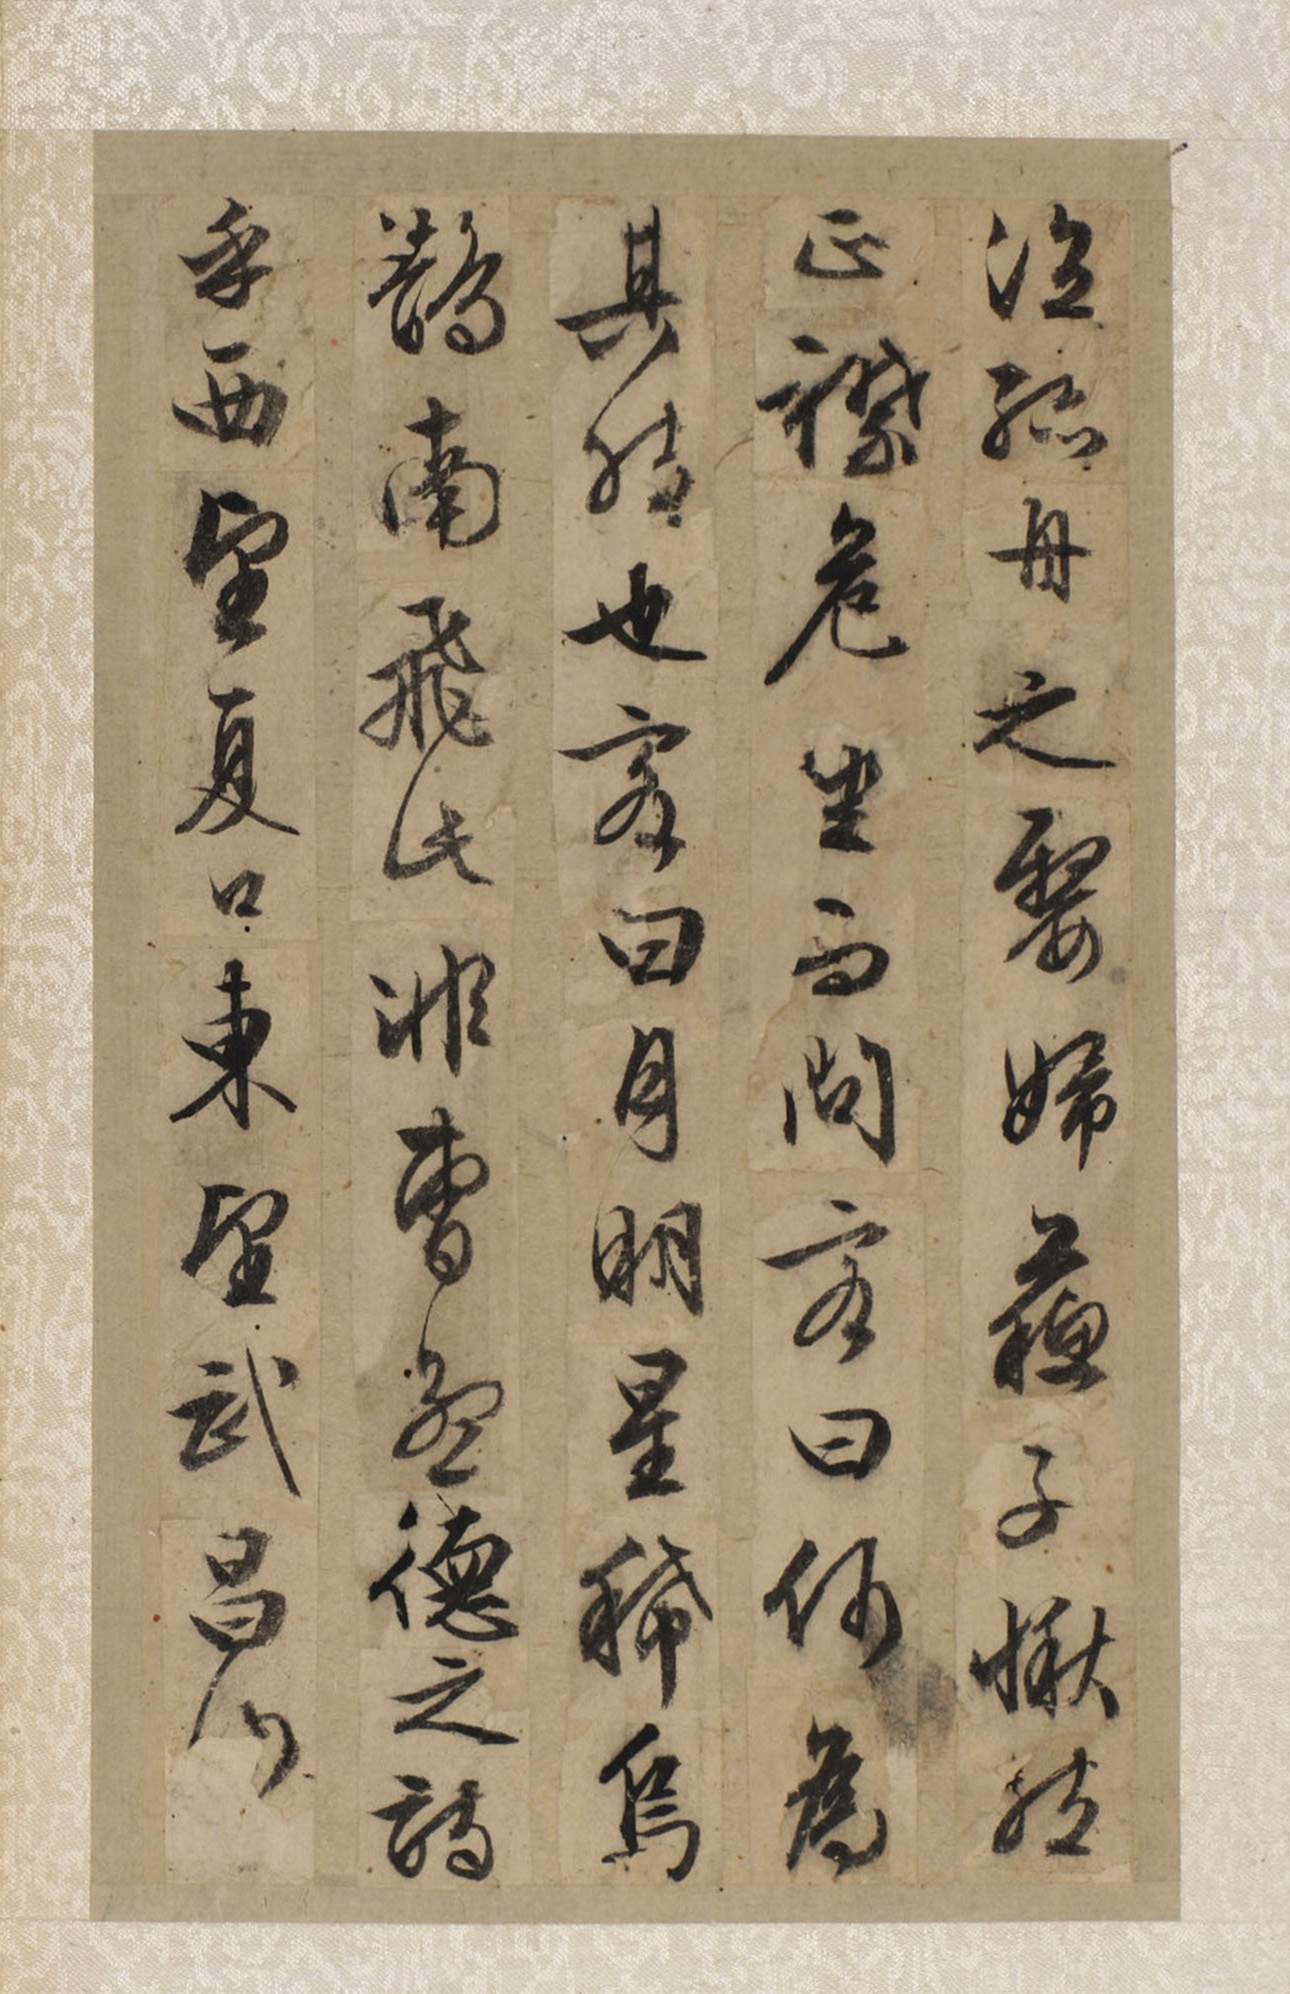 泣孤舟之嫠婦蘇子愀然
正襟危坐而問客曰何為
其然也客曰月明星稀烏
鵲南飛此非曹孟德之詩
乎西望夏口東望武昌山